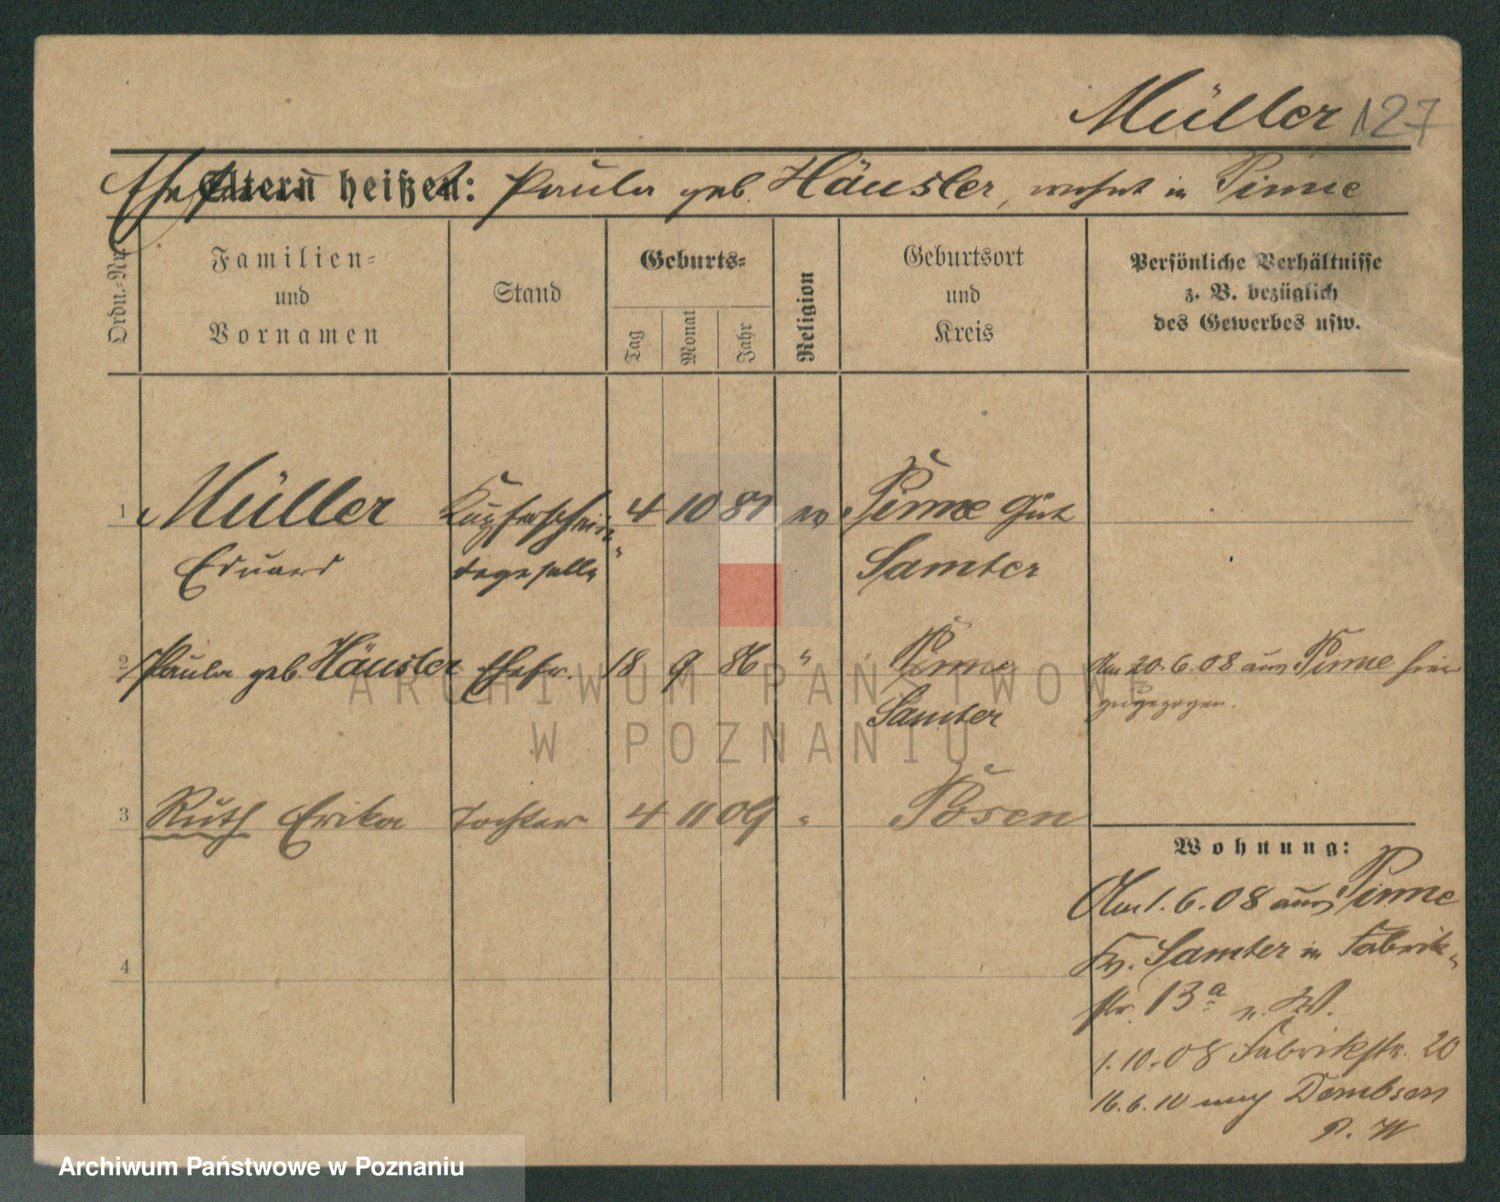 Müller 127
Ehefrau Eltern heißen: Paula geb. Häusler, wohnt in Pinne
Ordn.-Nr.
Familien-
und
Vornamen
Stand
Geburts-
Tag
Monat
Jahr
Religion
Geburtsort
und
Kreis
Persönliche Verhältnisse
z. B. bezüglich
des Gewerbes usw.
1 Müller Kupferschmie- 4 10 81 ev Pinne Gut
Eduard degeselle Samter
2 Paula geb. Häusler Ehefr. 18 9 86 " Pinne Am 20.6.08 aus Pinne hier
Samter zugezogen.
3 Ruth Erika Tochter 4 11 09 " Posen
4
Wohnung:
Am 1.6.08 aus Pinne
Kr. Samter in Fabrik-
str. 13a
1.10.08 Fabrikstr. 20
16.6.10 nach Dembsen
P. W
ARCHIWUM PAŃSTWOWE
W POZNANIU
Archiwum Państwowe w Poznaniu